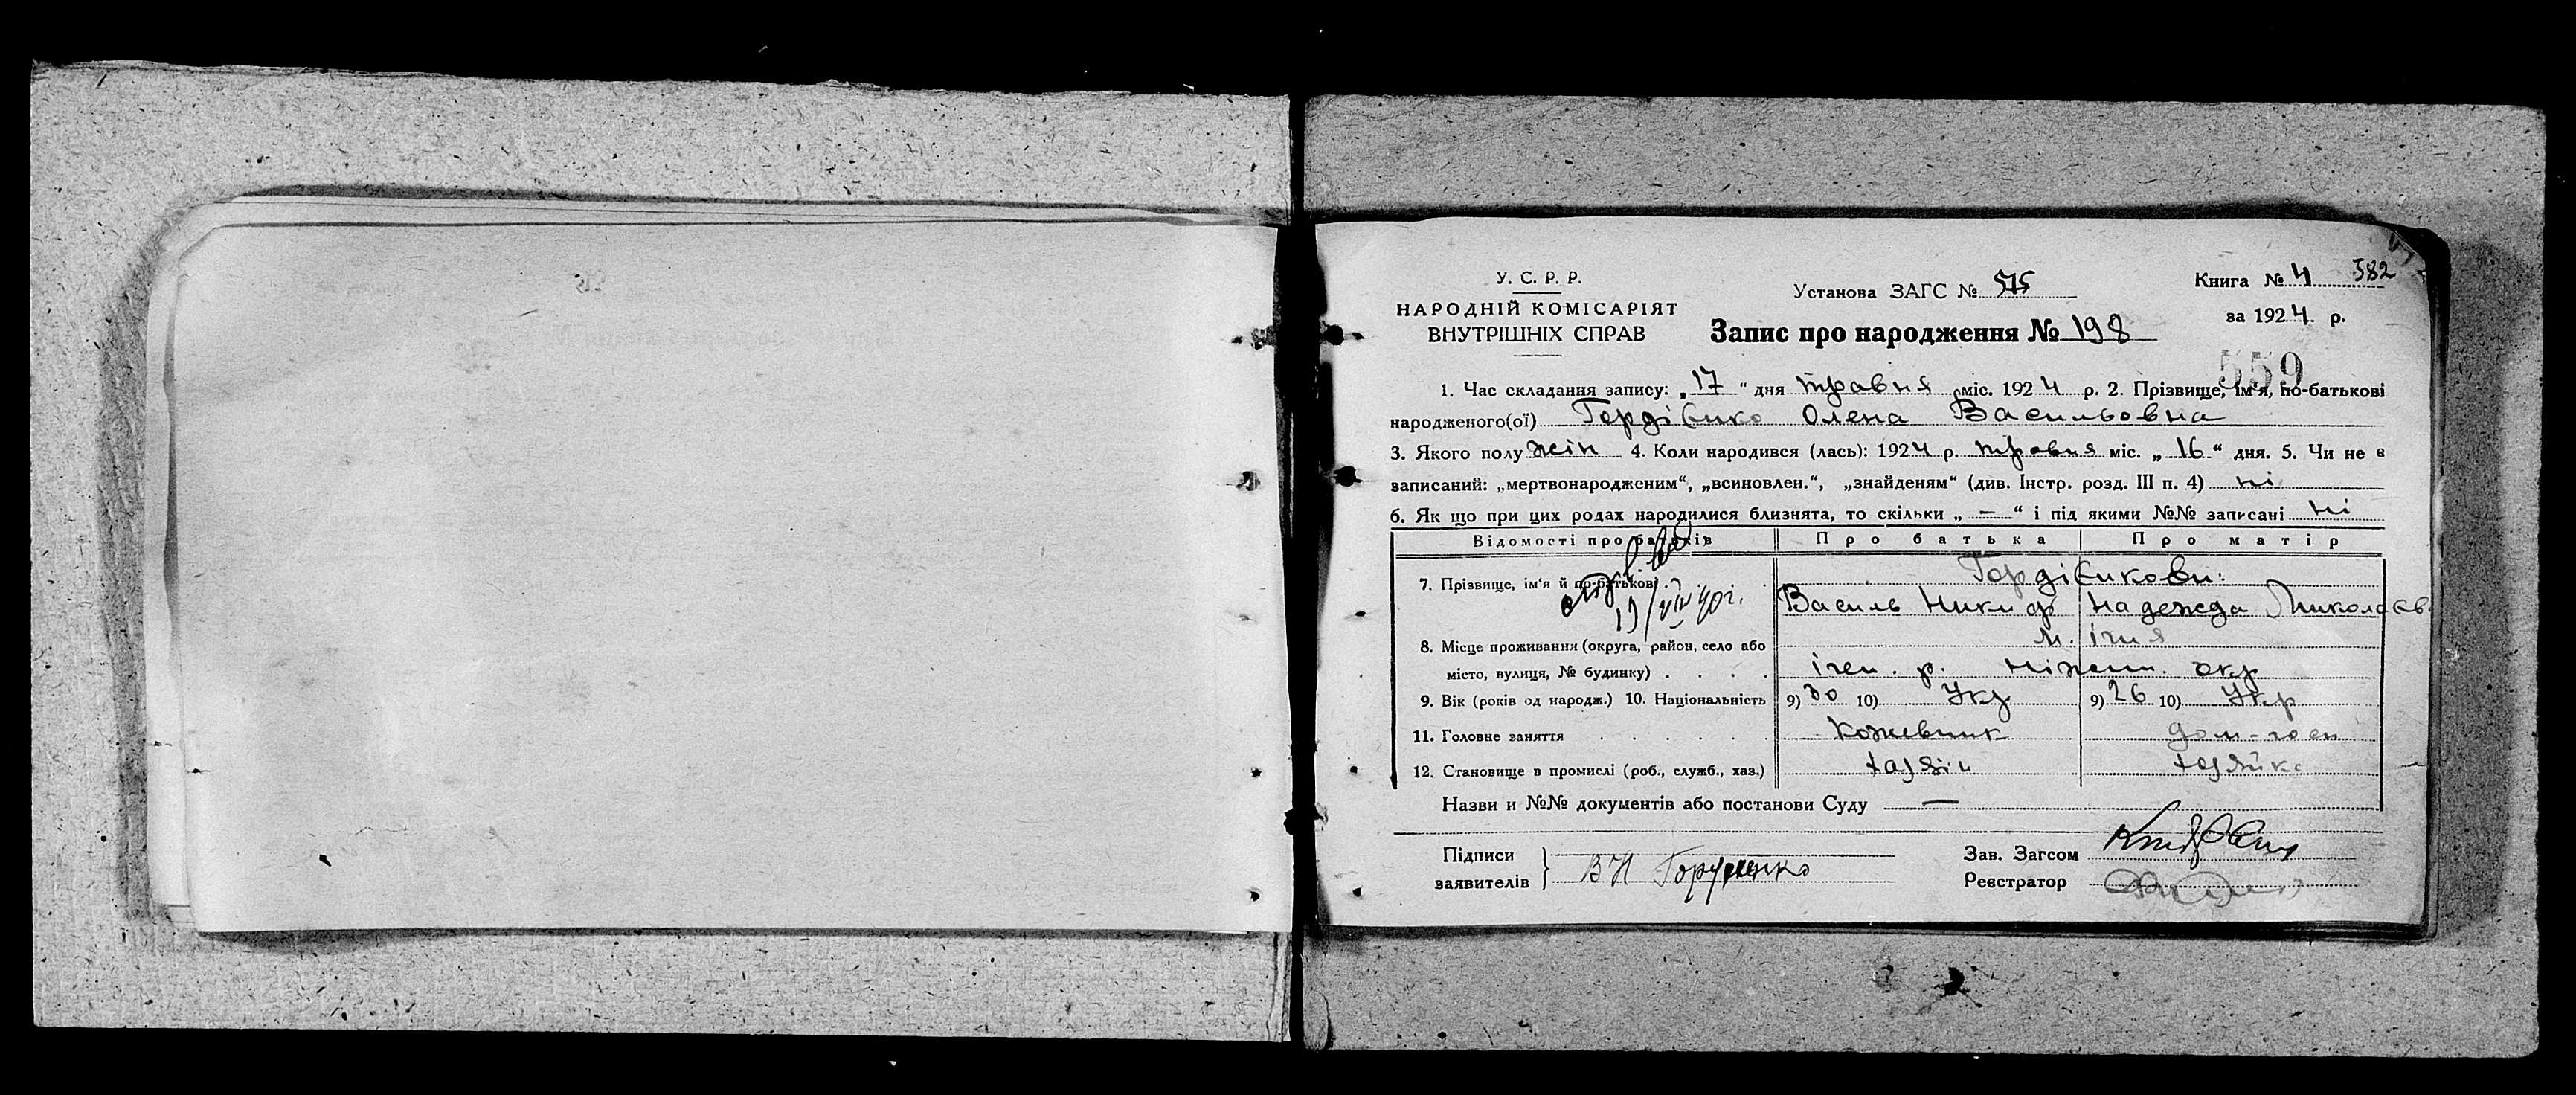 У. С. Р. Р.
НАРОДНІЙ КОМІСАРІЯТ
ВНУТРІШНІХ СПРАВ
Установа ЗАГС № 575
Запис про народження № 198
Книга № 4 582
за 1924 р.
559
1. Час складання запису: „17“ дня травня міс. 1924 р. 2. Прізвище, ім'я, по-батькові
народженого(ої) Гордієнко Олена Васильовна
3. Якого полу жін 4. Коли народився (лась): 1924 р. травня міс. „16“ дня. 5. Чи не є
записаний: „мертвонародженим“, „всиновлен.“, „знайденям“ (див. Інстр. розд. III п. 4) ні
6. Як що при цих родах народилися близнята, то скільки „—“ і під якими №№ записані ні
Відомості про батьків Про батька Про матір
7. Прізвище, ім'я й по-батькові Гордієнкови:
Василь Никиф Надежда Миколаєв
19/VIII 40 г.
м. ічня
8. Місце проживання (округа, район, село або
місто, вулиця, № будинку) ічен. р. ніжен. окр
9. Вік (років од народж.) 10. Національність 9) 30 10) Укр 9) 26 10) Укр
11. Головне заняття Кожевник дом-госп
12. Становище в промислі (роб., служб., хаз.) хазяін хазяйка
Назви и №№ документів або постанови Суду —
Підписи
заявителів } В Н
Зав. Загсом
Реєстратор